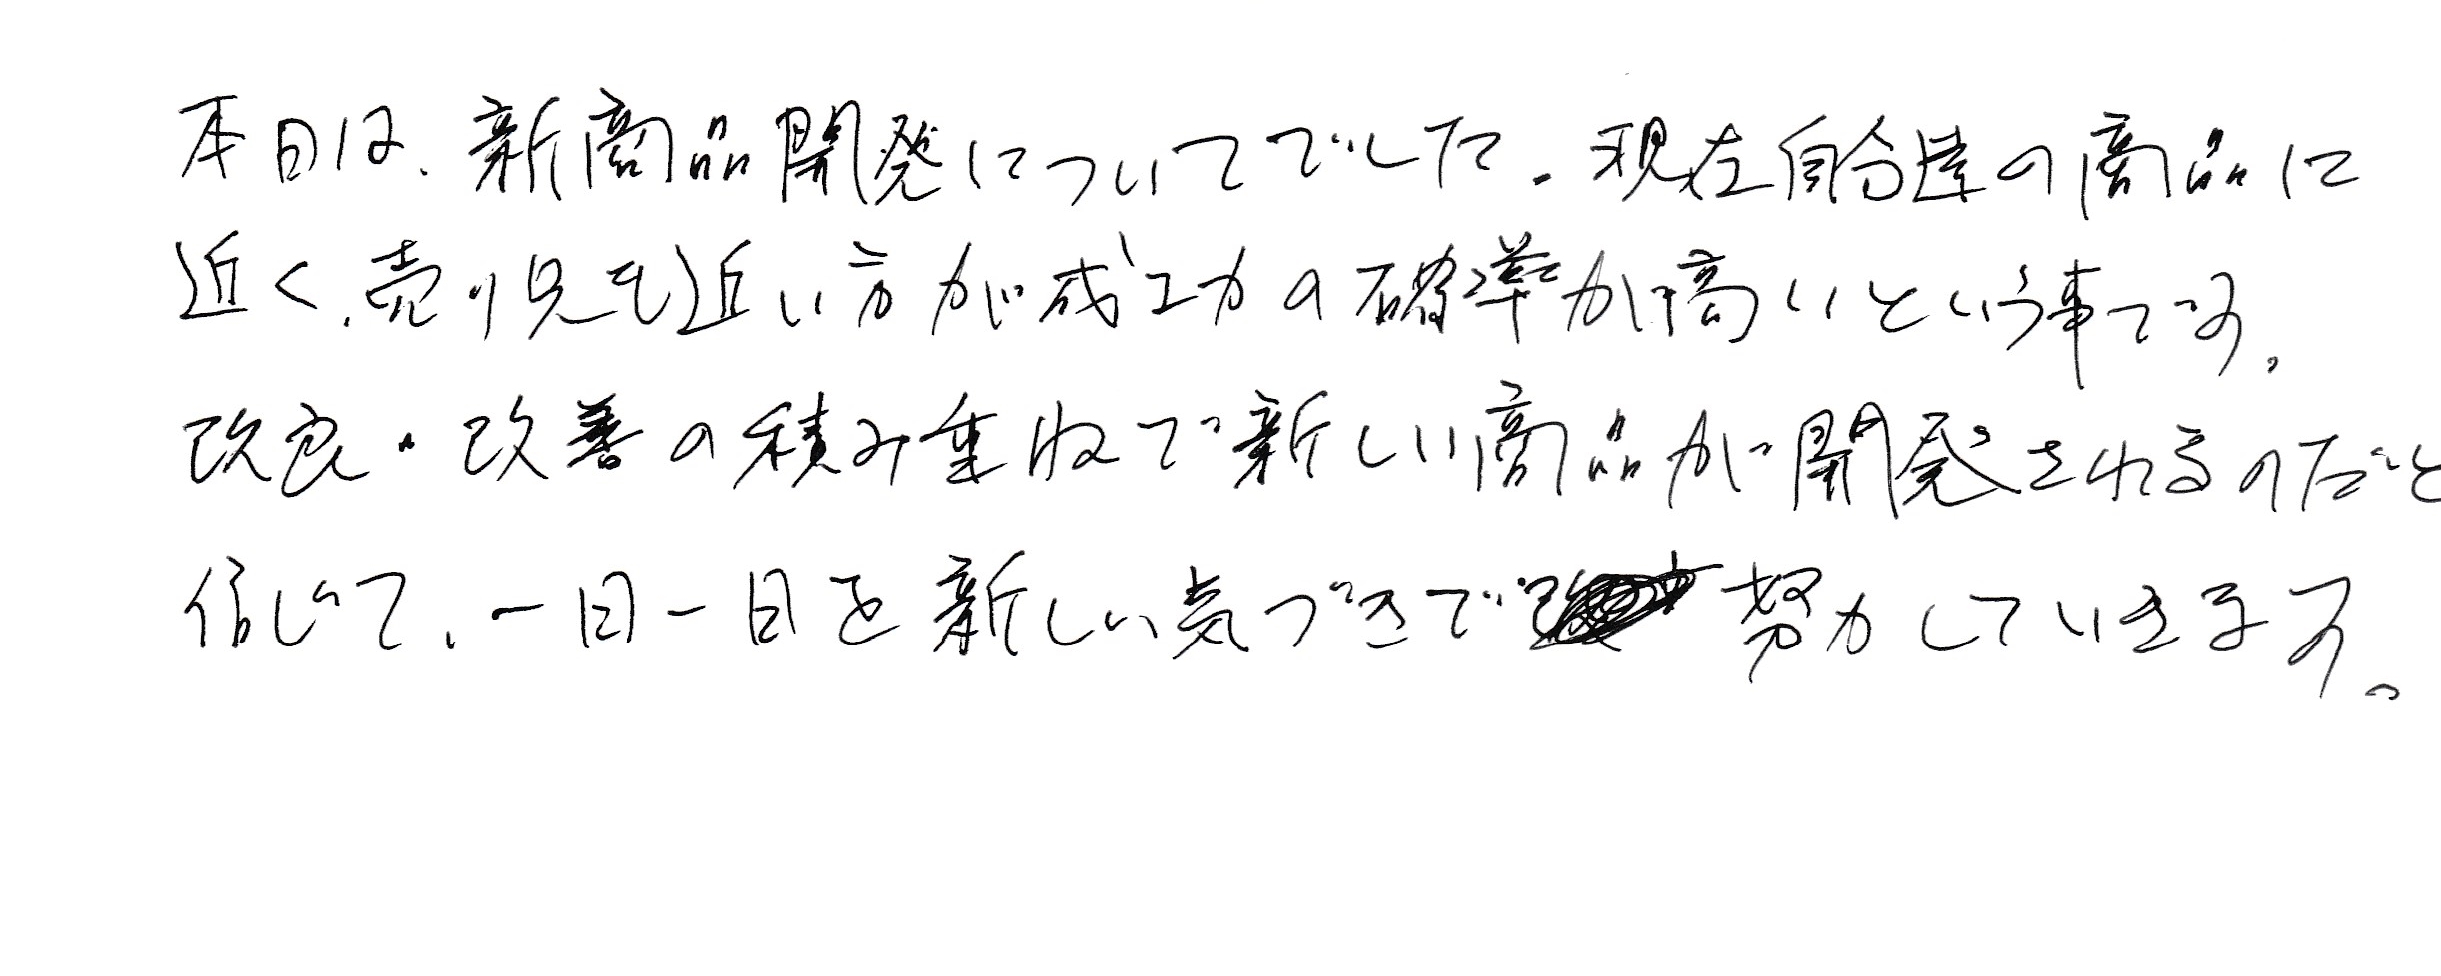 本日は、新商品開発についてでした。現在自分達の商品に
近く、売り先も近い方が成功の確率が高いという事です。
改良・改善の積み重ねで新しい商品が開発されるのだと
信じて、一日一日を新しい気づきで努力していきます。